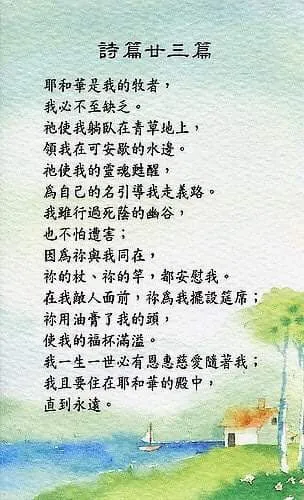 詩篇廿三篇
耶和華是我的牧者，
我必不至缺乏。
祂使我躺臥在青草地上，
領我在可安歇的水邊。
祂使我的靈魂甦醒，
為自己的名引導我走義路。
我雖行過死蔭的幽谷，
也不怕遭害；
因為祢與我同在，
祢的杖、祢的竿，都安慰我。
在我敵人面前，祢為我擺設筵席；
祢用油膏了我的頭，
使我的福杯滿溢。
我一生一世必有恩惠慈愛隨著我；
我且要住在耶和華的殿中，
直到永遠。